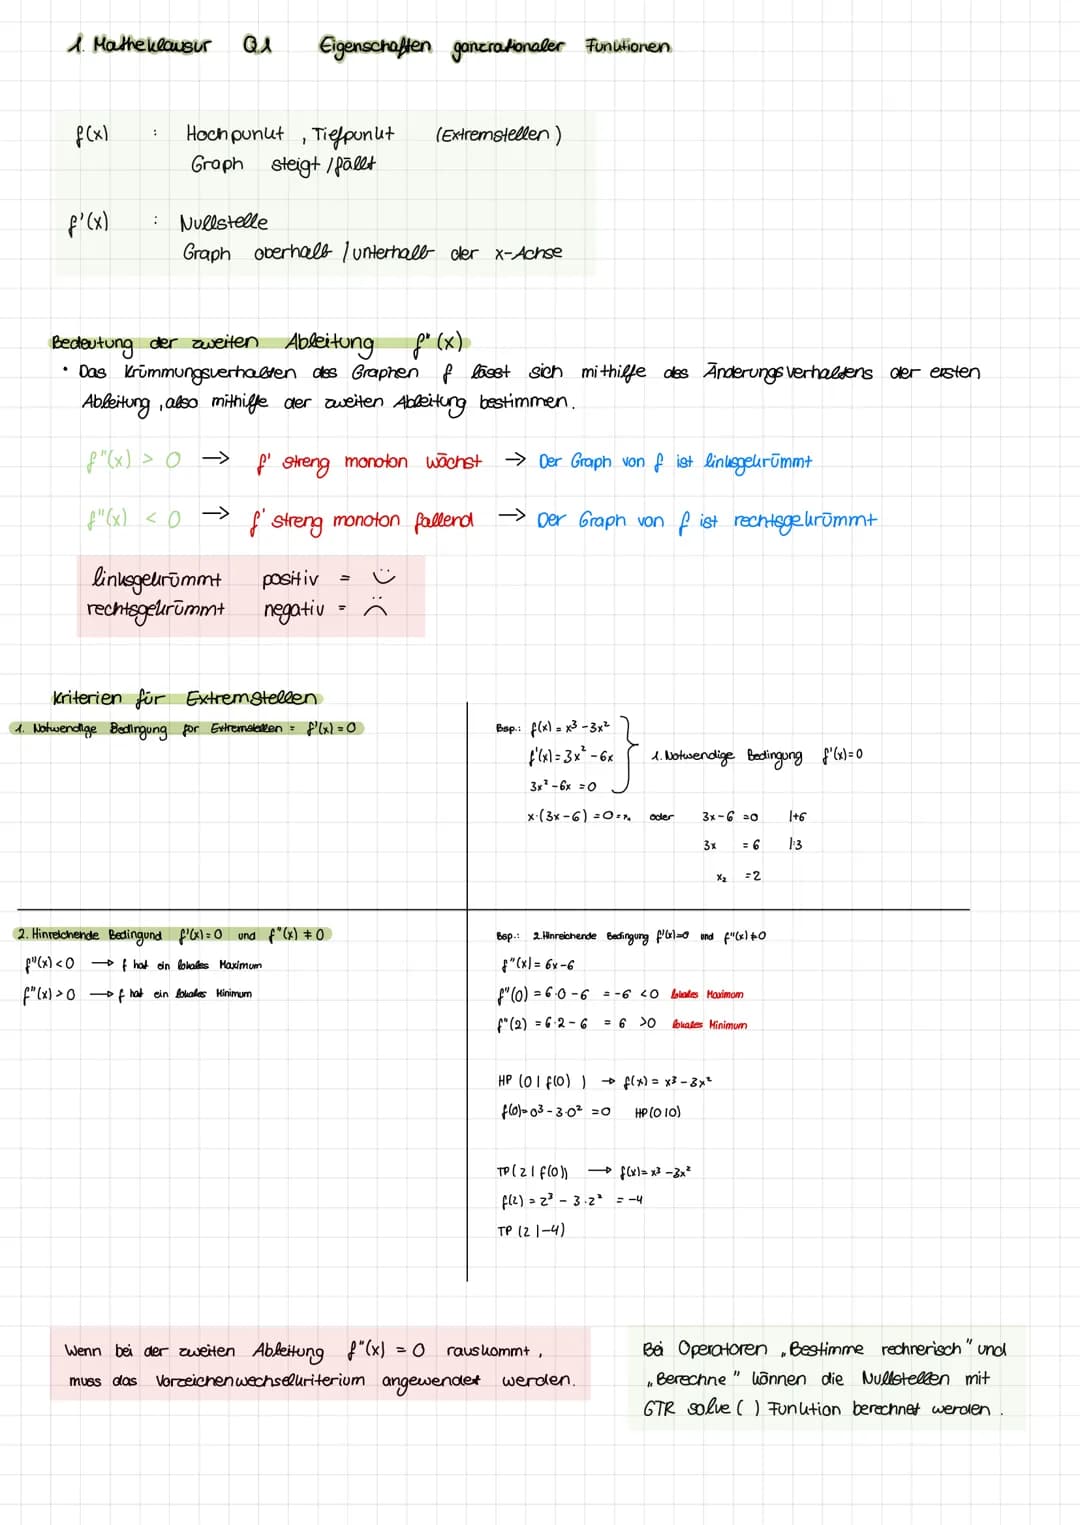 1. Matheklausur Q1 Eigenschaften ganzrationaler Funktionen
f(x) : Hochpunkt, Tiefpunkt (Extremstellen)
Graph steigt / fällt
f'(x) : Nullstelle
Graph oberhalb / unterhalb der x-Achse
Bedeutung der zweiten Ableitung f"(x)
• Das Krümmungsverhalten des Graphen f lässt sich mithilfe des Änderungsverhaltens der ersten
Ableitung, also mithilfe der zweiten Ableitung bestimmen.
f"(x) > 0 → f' streng monoton wächst → Der Graph von f ist linksgekrümmt
f"(x) < 0 → f' streng monoton fallend → Der Graph von f ist rechtsgekrümmt
linksgekrümmt positiv = :)
rechtsgekrümmt negativ = :(
Kriterien für Extremstellen
1. Notwendige Bedingung for Extremstellen = f'(x) = 0
Bsp.: f(x) = x³ - 3x²
f'(x) = 3x² - 6x
3x² - 6x = 0
1. Notwendige Bedingung f'(x) = 0
x·(3x-6) = 0 = x₁ oder 3x-6 = 0 |+6
3x = 6 |:3
x₂ = 2
2. Hinreichende Bedingund f'(x) = 0 und f"(x) ≠ 0
f"(x) < 0 → f hat ein lokales Maximum
f"(x) > 0 → f hat ein lokales Minimum
Bsp.: 2. Hinreichende Bedingung f'(x)=0 und f"(x)≠0
f"(x) = 6x-6
f"(0) = 6·0-6 = -6 <0 lokales Maximum
f"(2) = 6·2-6 = 6 >0 lokales Minimum
HP (0 | f(0) ) → f(x) = x³ - 3x²
f(0) = 0³ - 3·0² = 0 HP(0|0)
TP(2 | f(0)) → f(x) = x³ - 3x²
f(2) = 2³ - 3·2² = -4
TP (2 |-4)
Wenn bei der zweiten Ableitung f"(x) = 0 rauskommt,
muss das Vorzeichenwechselkriterium angewendet werden.
Bei Operatoren „Bestimme rechnerisch" und
„Berechne" können die Nullstellen mit
GTR solve ( ) Funktion berechnet werden.